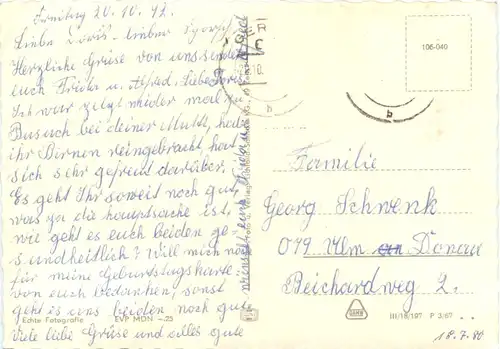 20.10.92.
Herzliche Grüse von uns sendet
euch Frieda u. Alfred. Liebe Doris
Ich war jetzt wieder mal zu
Busuch bei deiner Mutti, habe
ihr Birnen reingebracht, hat
sich sehr gefreut darüber.
Es geht Ihr soweit noch gut,
was ja die hauptsache ist,
wie geht es euch beiden ge
sundheitlich? Will mich noch
für meine Geburtstagskarte
von euch bedanken, sonst
geht es uns beiden noch gute
Viele liebe Grüse und alles gute
wünscht euch
Echte Fotografie EVP MDN -.25
106-040
Familie
Georg Schwenk
079 Ulm Donau
Reichardweg 2.
III/18/197 P 3/67
18.7.80